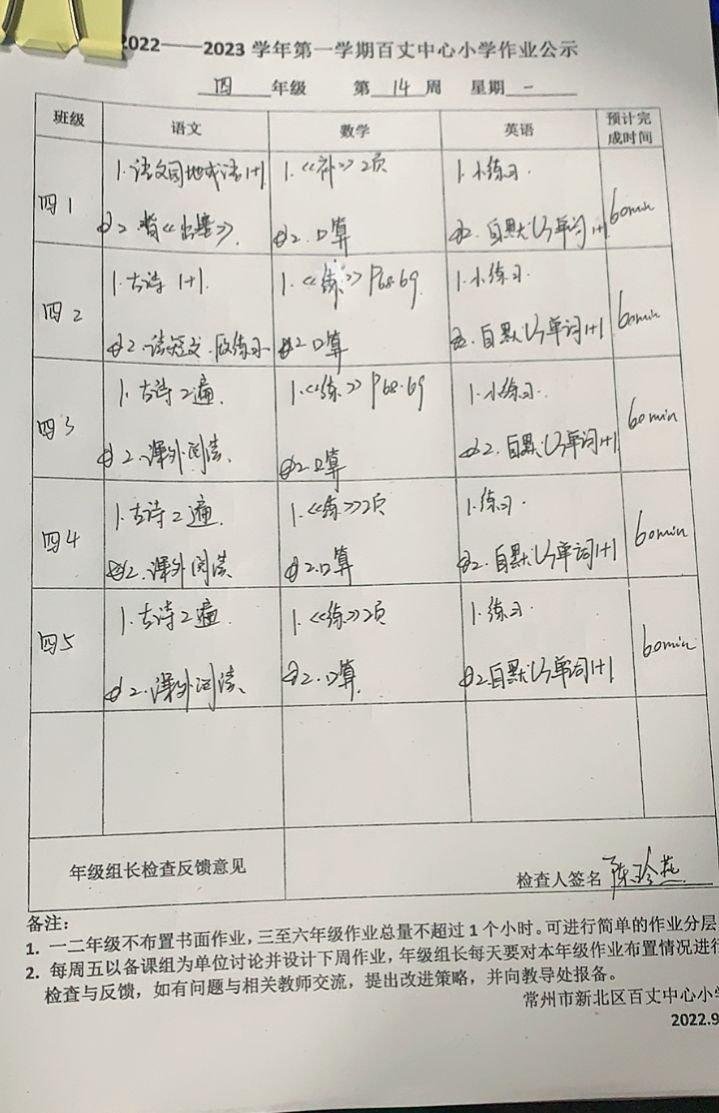 2022——2023 学年第一学期百丈中心小学作业公示
四 年级 第 14 周 星期 一
班级 语文 数学 英语 预计完成时间
四1
1.语文园地成语1+1
2.背《出塞》.
1.《补》2页
2.口算
1.小练习.
2.自默U3单词1+1
60min
四2
1.古诗 1+1.
2.读短文.
1.《练》P68.69
2.口算
1.小练习.
2.自默U3单词1+1
60min
四3
1.古诗2遍.
2.课外阅读、
1.《练》P68.69
2.口算
1.小练习.
2.自默U3单词1+1
60min
四4
1.古诗2遍.
2.课外阅读
1.《练》2页
2.口算
1.练习.
2.自默U3单词1+1
60min
四5
1.古诗2遍.
2.课外阅读、
1.《练》2页
2.口算.
1.练习.
2.自默U3单词1+1
60min
年级组长检查反馈意见
检查人签名 陈玲燕
备注:
1. 一二年级不布置书面作业,三至六年级作业总量不超过 1 个小时。可进行简单的作业分层
2. 每周五以备课组为单位讨论并设计下周作业,年级组长每天要对本年级作业布置情况进行
检查与反馈,如有问题与相关教师交流,提出改进策略,并向教导处报备。
常州市新北区百丈中心小学
2022.9